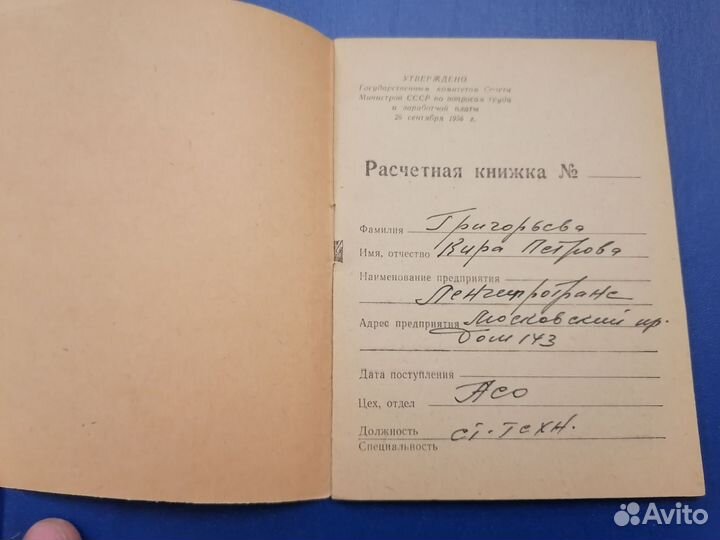 УТВЕРЖДЕНО
Государственным комитетом Совета
Министров СССР по вопросам труда
и заработной платы
26 сентября 1956 г.
Расчетная книжка №
Фамилия Григорьева
Имя, отчество Кира Петрова
Наименование предприятия
Ленгипротранс
Адрес предприятия Московский пр.
Дом 143
Дата поступления
Цех, отдел АСО
Должность ст. техн.
Специальность
Avito